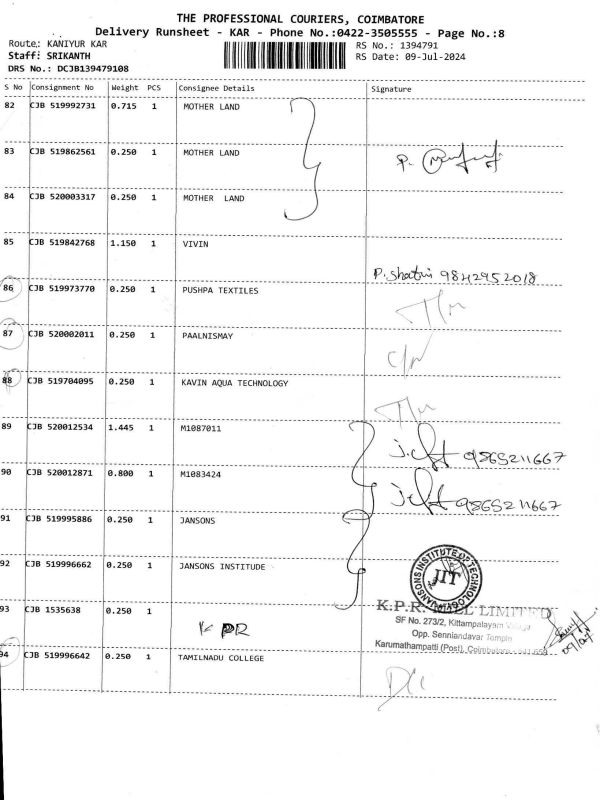 THE PROFESSIONAL COURIERS, COIMBATORE
Delivery Runsheet - KAR - Phone No.:0422-3505555 - Page No.:8
Route: KANIYUR KAR
RS No.: 1394791
Staff: SRIKANTH
RS Date: 09-Jul-2024
DRS No.: DCJB139479108
S No Consignment No Weight PCS Consignee Details Signature
82 CJB 519992731 0.715 1 MOTHER LAND
83 CJB 519862561 0.250 1 MOTHER LAND
84 CJB 520003317 0.250 1 MOTHER LAND
85 CJB 519842768 1.150 1 VIVIN
P. 9842952018
86 CJB 519973770 0.250 1 PUSHPA TEXTILES
87 CJB 520002011 0.250 1 PAALNISMAY
88 CJB 519704095 0.250 1 KAVIN AQUA TECHNOLOGY
89 CJB 520012534 1.445 1 M1087011
9865211667
90 CJB 520012871 0.800 1 M1083424
9865211667
91 CJB 519995886 0.250 1 JANSONS
92 CJB 519996662 0.250 1 JANSONS INSTITUDE
JANSONS INSTITUTE OF TECHNOLOGY
JIT
93 CJB 1535638 0.250 1
KPR
K.P.R. MILL LIMITED
SF No. 273/2, Kittampalayam Village
Opp. Senniandavar Temple
Karumathampatti (Post), Coimbatore - 641 659
94 CJB 519996642 0.250 1 TAMILNADU COLLEGE